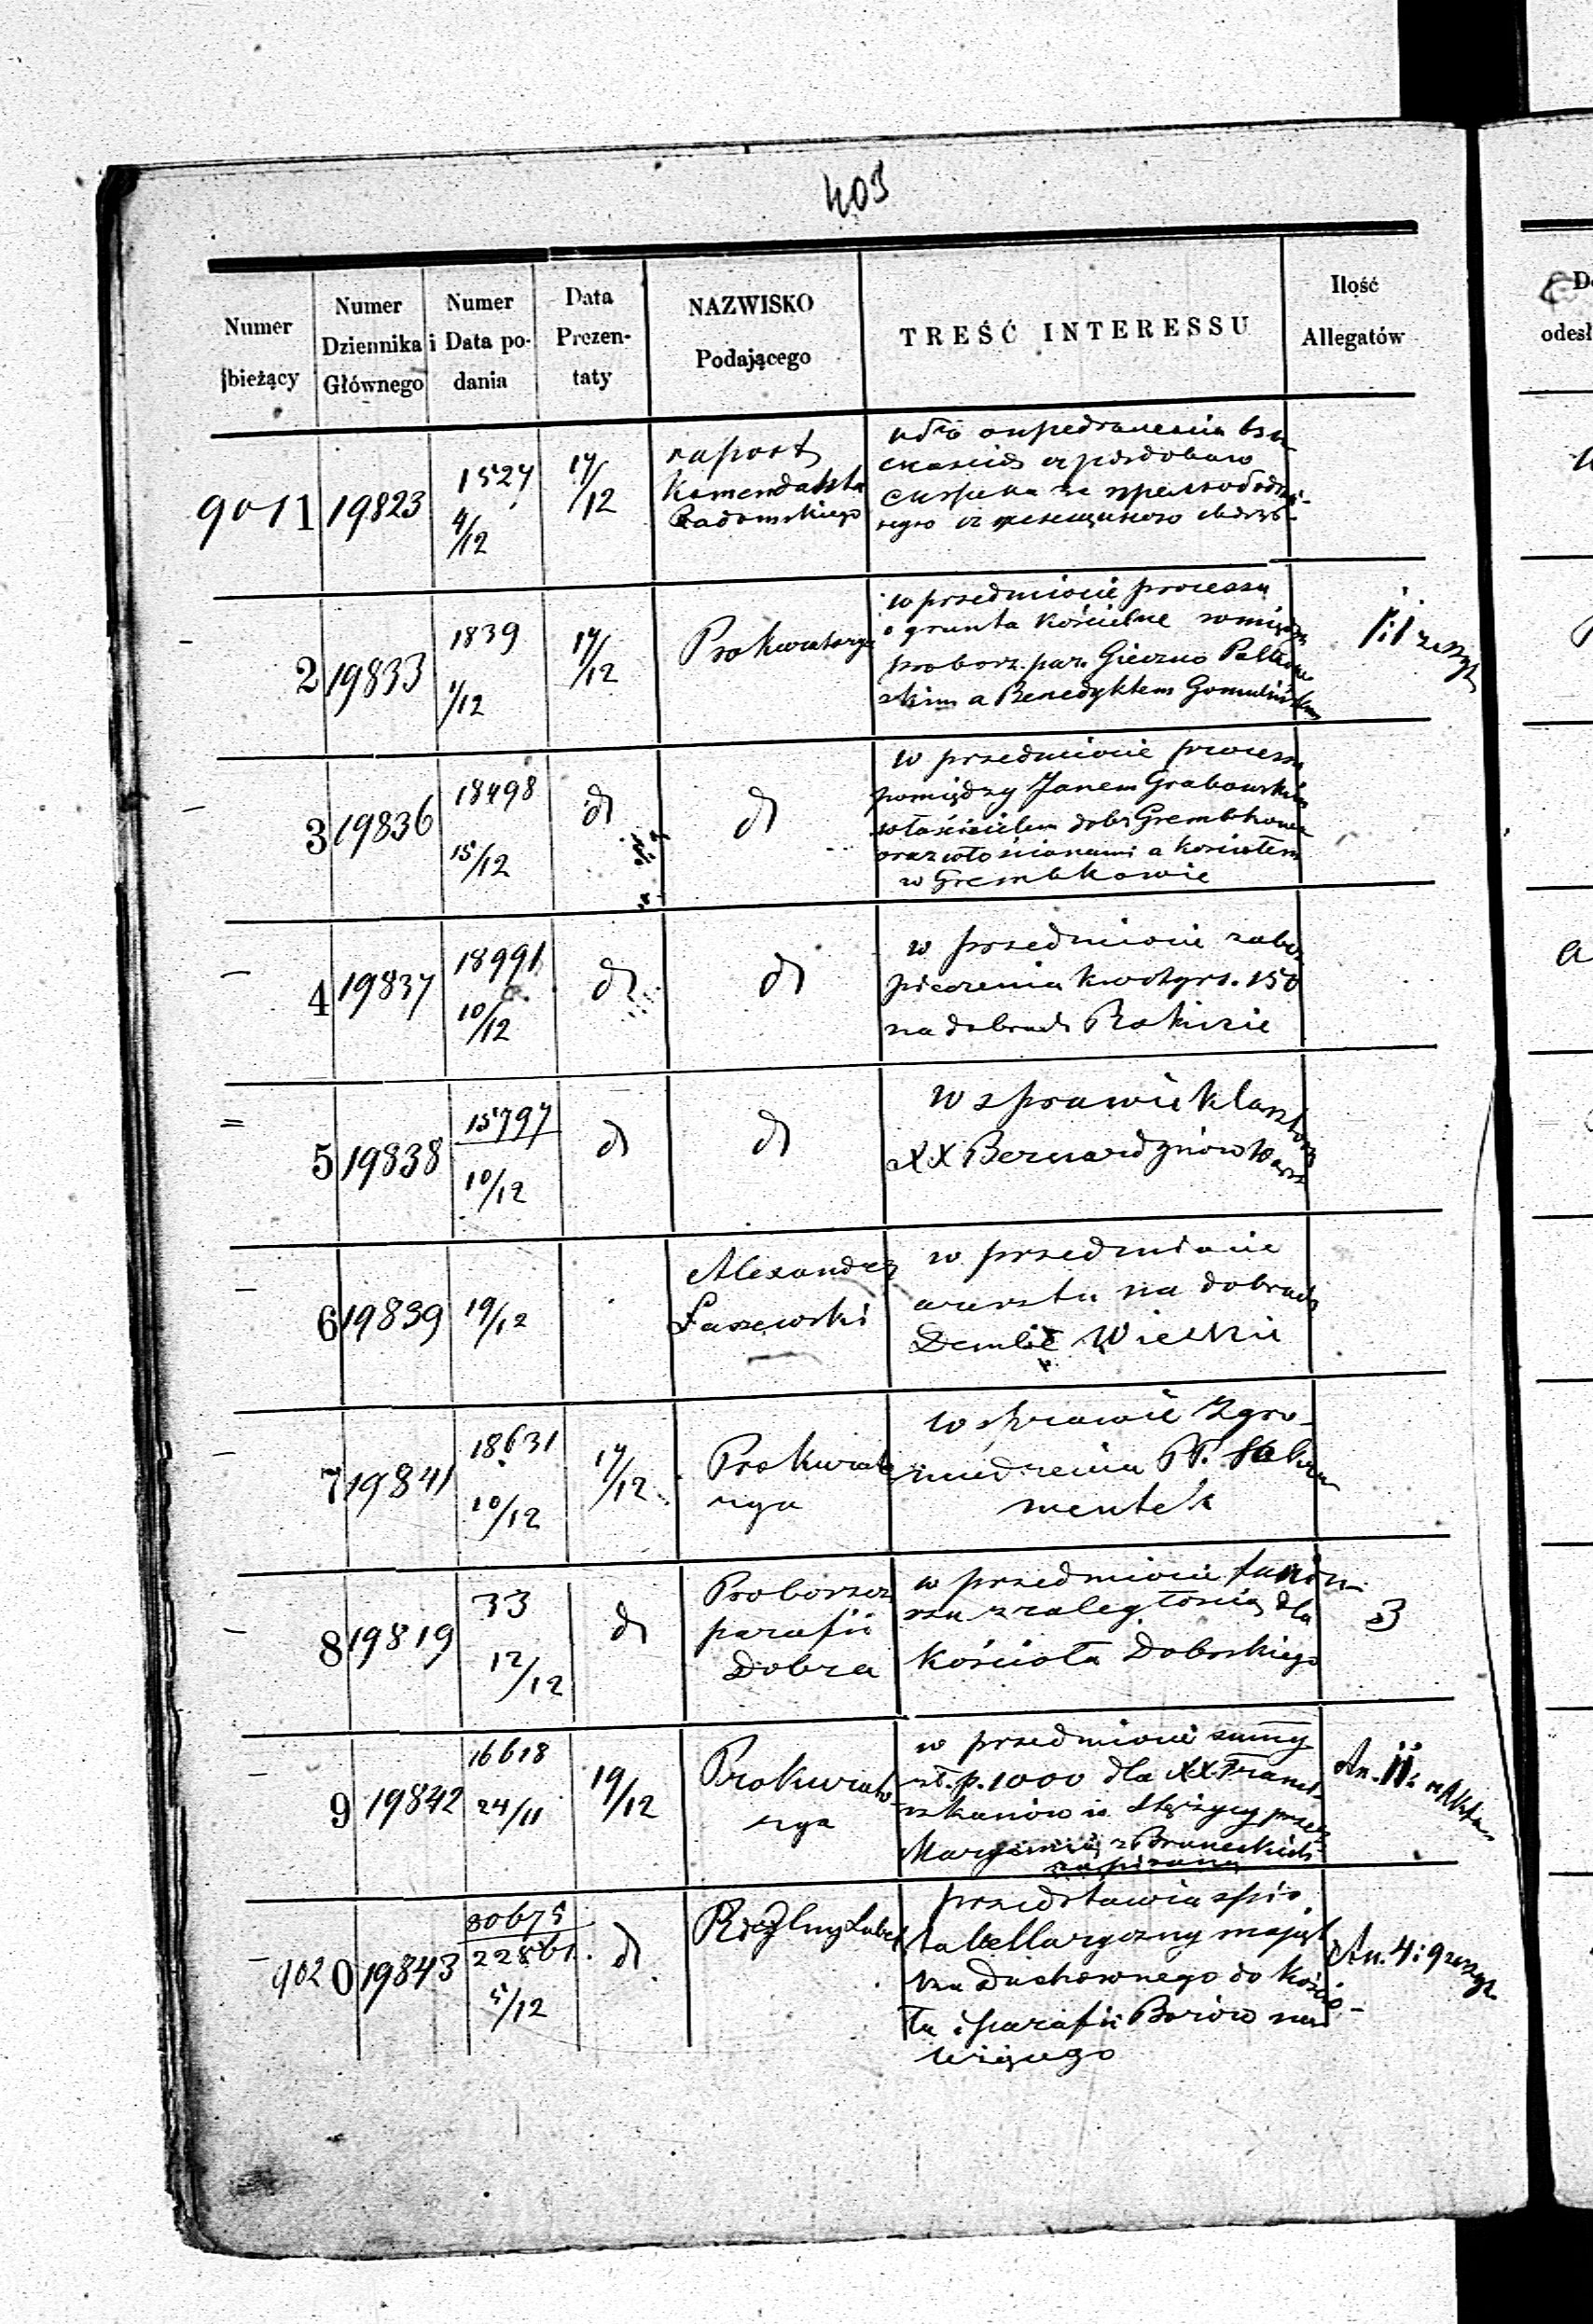 403
Numer bieżący
Numer Dziennika Głównego
Numer i Data podania
Data Prezentaty
NAZWISKO Podającego
TREŚĆ INTERESSU
Ilość Allegatów
odesł
9011 19823 1527 4/12 17/12
raport
Komendanta
Radomskiego
2 19833 1839 1/12 17/12
Prokuratorya
w przedmiocie processu
o grunta kościelne pomiędzy
probosz. par. Gieczno
a Benedyktem Gomulińskim
3 19836 18498 15/12 d d
w przedmiocie processu
pomiędzy Janem Grabowskim
właścicielem dobr Grembkowa
oraz włościanami a kościołem
w Grembkowie
4 19837 18991 10/12 d d
w przedmiocie zabez
pieczenia kwoty rs. 150
na dobrach Rokicie
5 19838 15797 10/12 d d
W sprawie klasztoru
XX Bernardynów Warsz
6 19839 19/12
Alexander
Łaszewski
w przedmiocie
na dobrach
Dembe Wielkie
7 19841 18631 10/12 17/12
Prokurato
rya
w sprawie Zgro-
madzenia PP. Sakra
mentek
8 19819 33 12/12 d
Proboszcz
parafii
Dobra
w przedmiocie fundu-
szu zaległością dla
Kościoła Dobrskiego
3
9 19842 16618 24/11 19/12
Prokurato
rya
w przedmiocie summy
zł. p. 1000 dla XX. Franci-
szkanów w Stężycy przez
Maryannę z
zapisaną
An. II
9020 19843 30675 22861 5/12 d
przedstawia spis
tabellaryczny mająt
ku Duchownego do kościo-
ła i parafii Borów na
leżącego
An. 4: 9 zeszyt